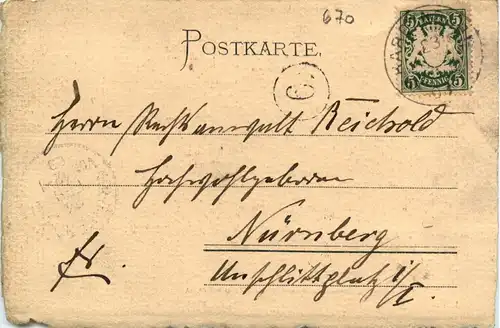 670
POSTKARTE.
BAYERN
5 5
5 PFENNIG 5
C.
Herrn Rechtsanwalt Reichold
Hochwohlgeboren
Nürnberg
Unschlittplatz 1/I
fr.